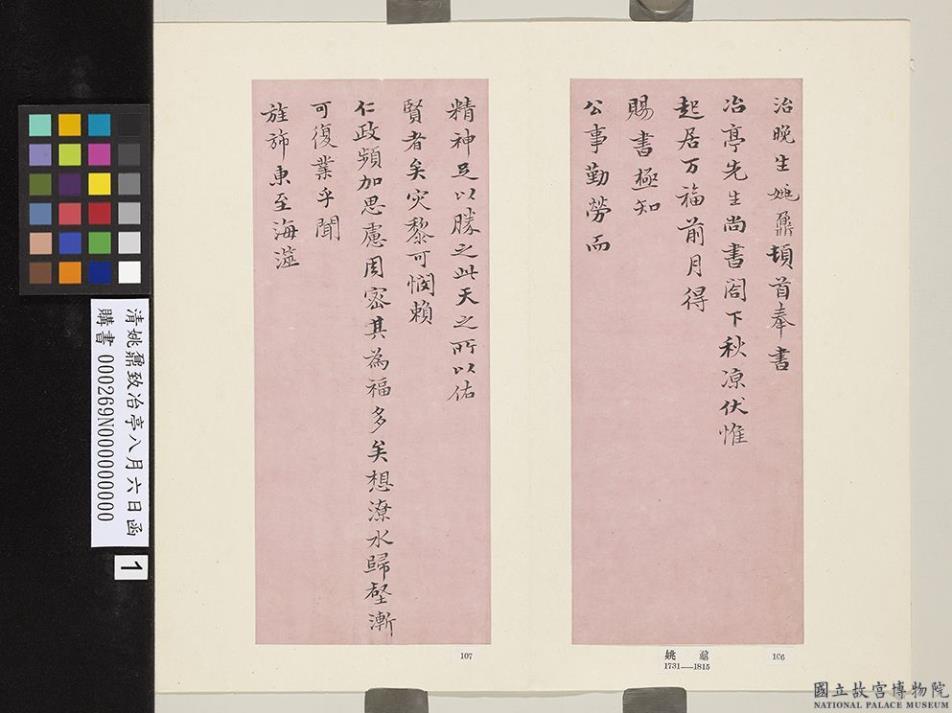 治晚生姚鼐頓首奉書
冶亭先生尚書閣下秋凉伏惟
起居万福前月得
賜書極知
公事勤勞而
精神足以勝之此天之所以佑
賢者矣灾黎可憫賴
仁政頻加思慮周密其為福多矣想潦水歸壑漸
可復業乎聞
旌斾東至海澨
106
姚鼐
1731—1815
107
清姚鼐致冶亭八月六日函
購書 000269N000000000
1
國立故宮博物院
NATIONAL PALACE MUSEUM